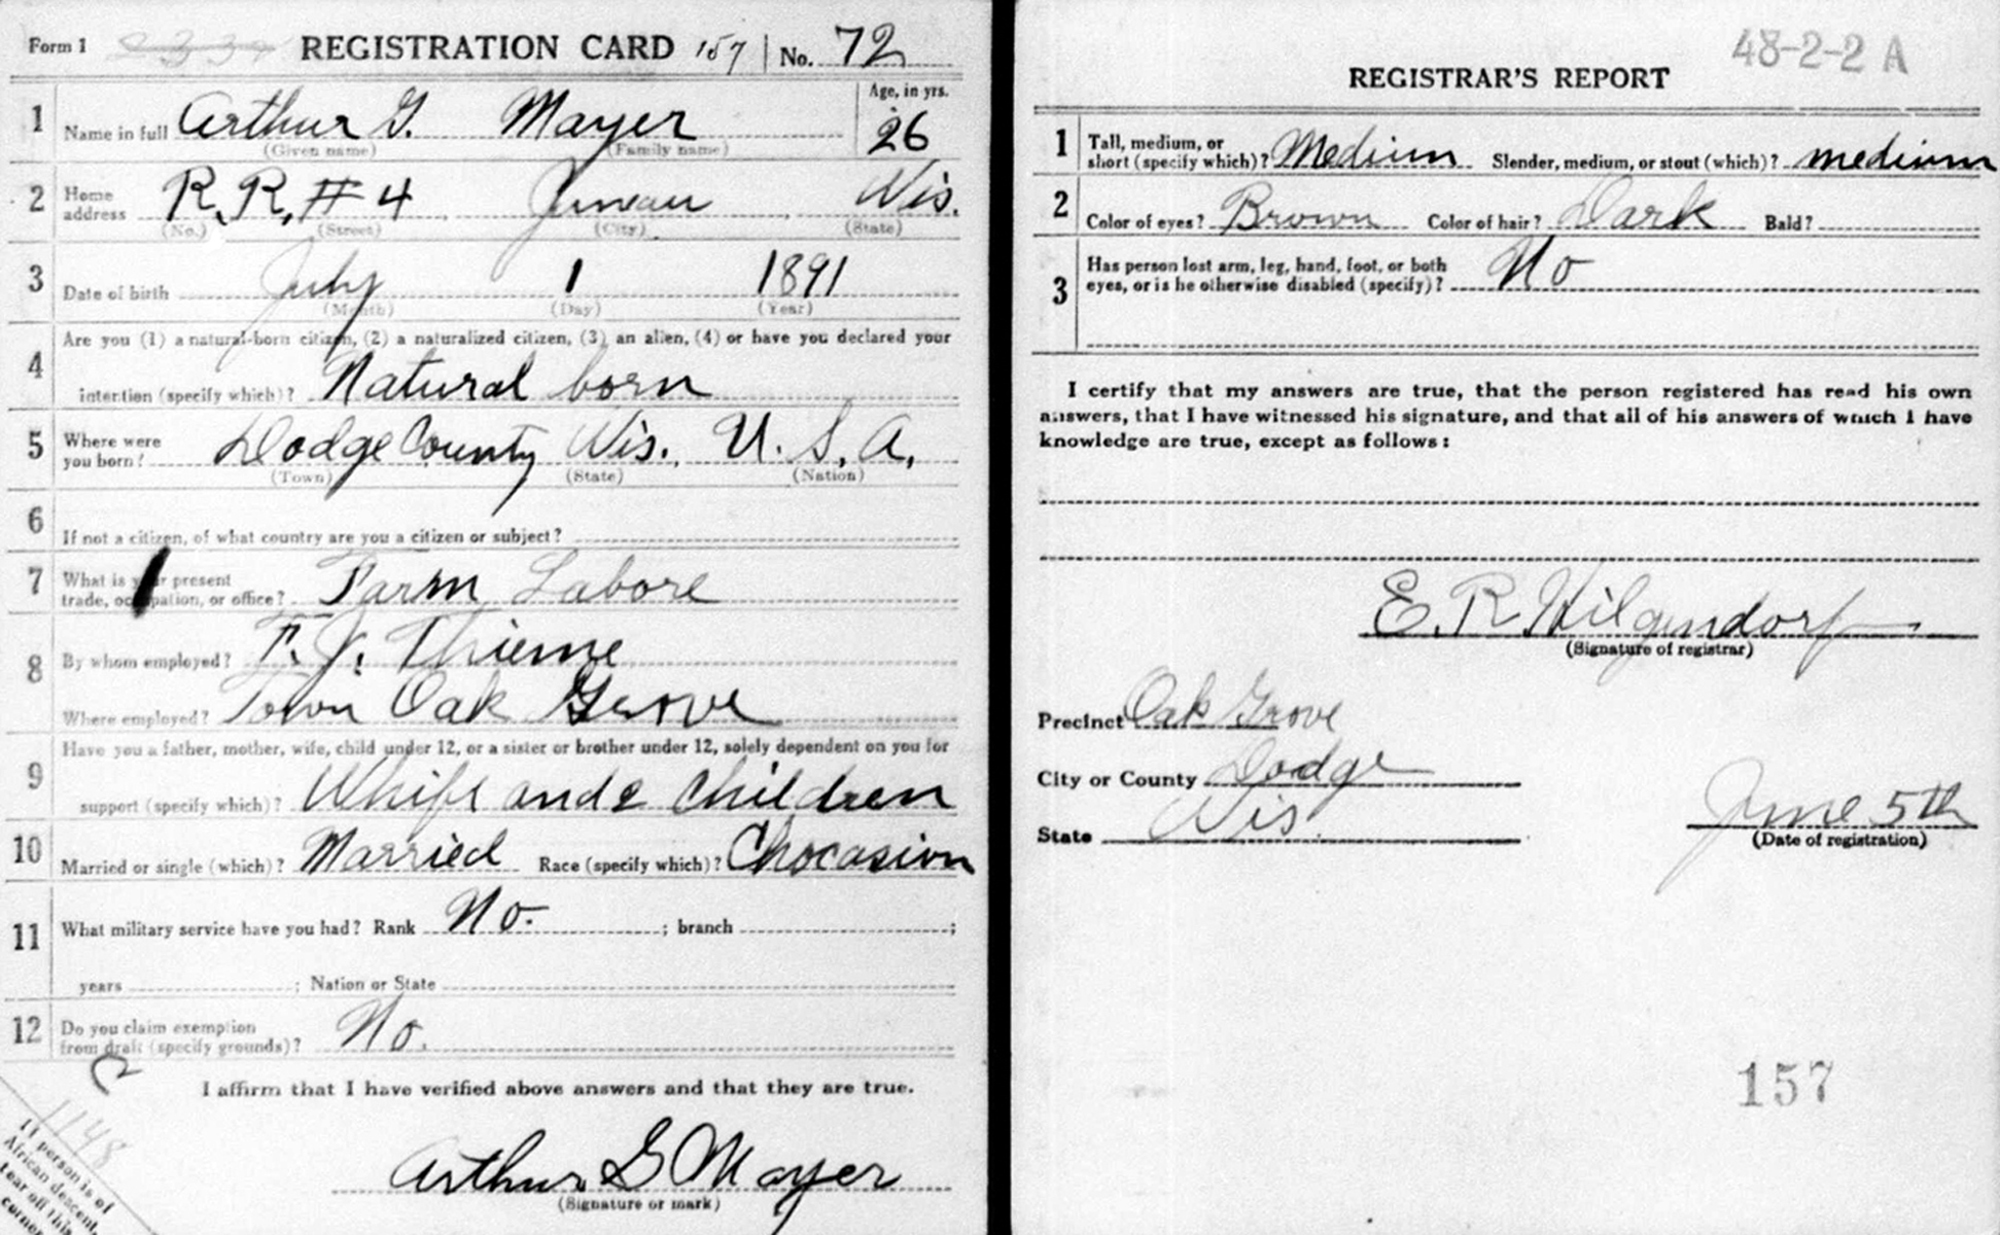 Form 1 REGISTRATION CARD 157 No. 72
1 Name in full Arthur G. Mayer Age, in yrs. 26
(Given name) (Family name)
2 Home address R. R. # 4 Juneau Wis.
(No.) (Street) (City) (State)
3 Date of birth July 1 1891
(Month) (Day) (Year)
4 Are you (1) a natural-born citizen, (2) a naturalized citizen, (3) an alien, (4) or have you declared your
intention (specify which)? Natural born
5 Where were you born? Dodge County Wis. U. S. A.
(Town) (State) (Nation)
6 If not a citizen, of what country are you a citizen or subject?
7 What is your present trade, occupation, or office? Farm Labore
8 By whom employed? F. J. Thieme
Where employed? Town Oak Grove
9 Have you a father, mother, wife, child under 12, or a sister or brother under 12, solely dependent on you for
support (specify which)? Whife and 2 Children
10 Married or single (which)? Married Race (specify which)? Chocasion
11 What military service have you had? Rank No. ; branch ;
years ; Nation or State
12 Do you claim exemption from draft (specify grounds)? No.
I affirm that I have verified above answers and that they are true.
1148
Arthur G Mayer
(Signature or mark)
If person is of
African descent,
tear off this
corner
48-2-2 A
REGISTRAR'S REPORT
1 Tall, medium, or short (specify which)? Medium Slender, medium, or stout (which)? medium
2 Color of eyes? Brown Color of hair? Dark Bald?
3 Has person lost arm, leg, hand, foot, or both
eyes, or is he otherwise disabled (specify)? No
I certify that my answers are true, that the person registered has read his own
answers, that I have witnessed his signature, and that all of his answers of which I have
knowledge are true, except as follows:
E. R. Hilgendorf
(Signature of registrar)
Precinct Oak Grove
City or County Dodge
State Wis.
June 5th
(Date of registration)
157